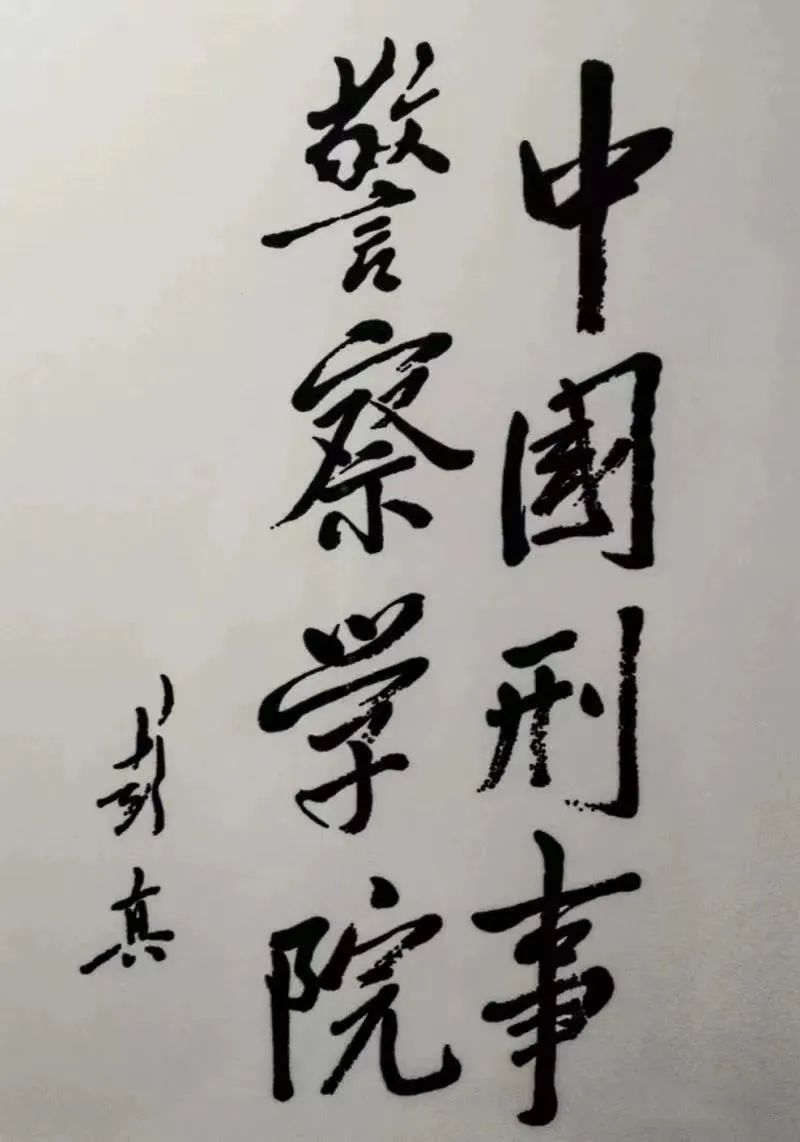 中國刑事
警察学院
彭真